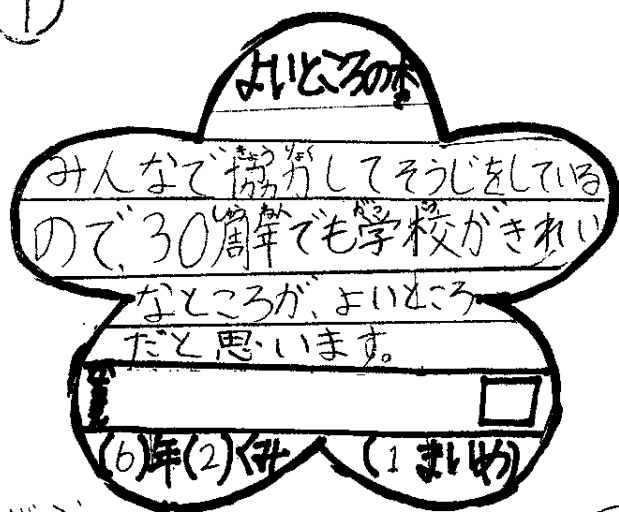 ①
よいところの木
みんなで協力してそうじをしている
ので、30周年でも学校がきれい
なところが、よいところ
だと思います。
(6)年(2)くみ (1まいめ)